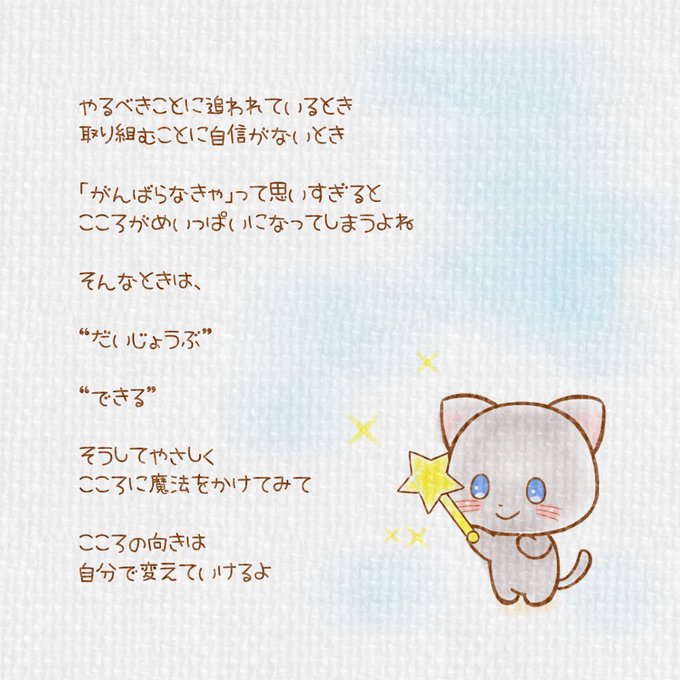 やるべきことに追われているとき
取り組むことに自信がないとき
「がんばらなきゃ」って思いすぎると
こころがめいっぱいになってしまうよね
そんなときは、
“だいじょうぶ”
“できる”
そうしてやさしく
こころに魔法をかけてみて
こころの向きは
自分で変えていけるよ